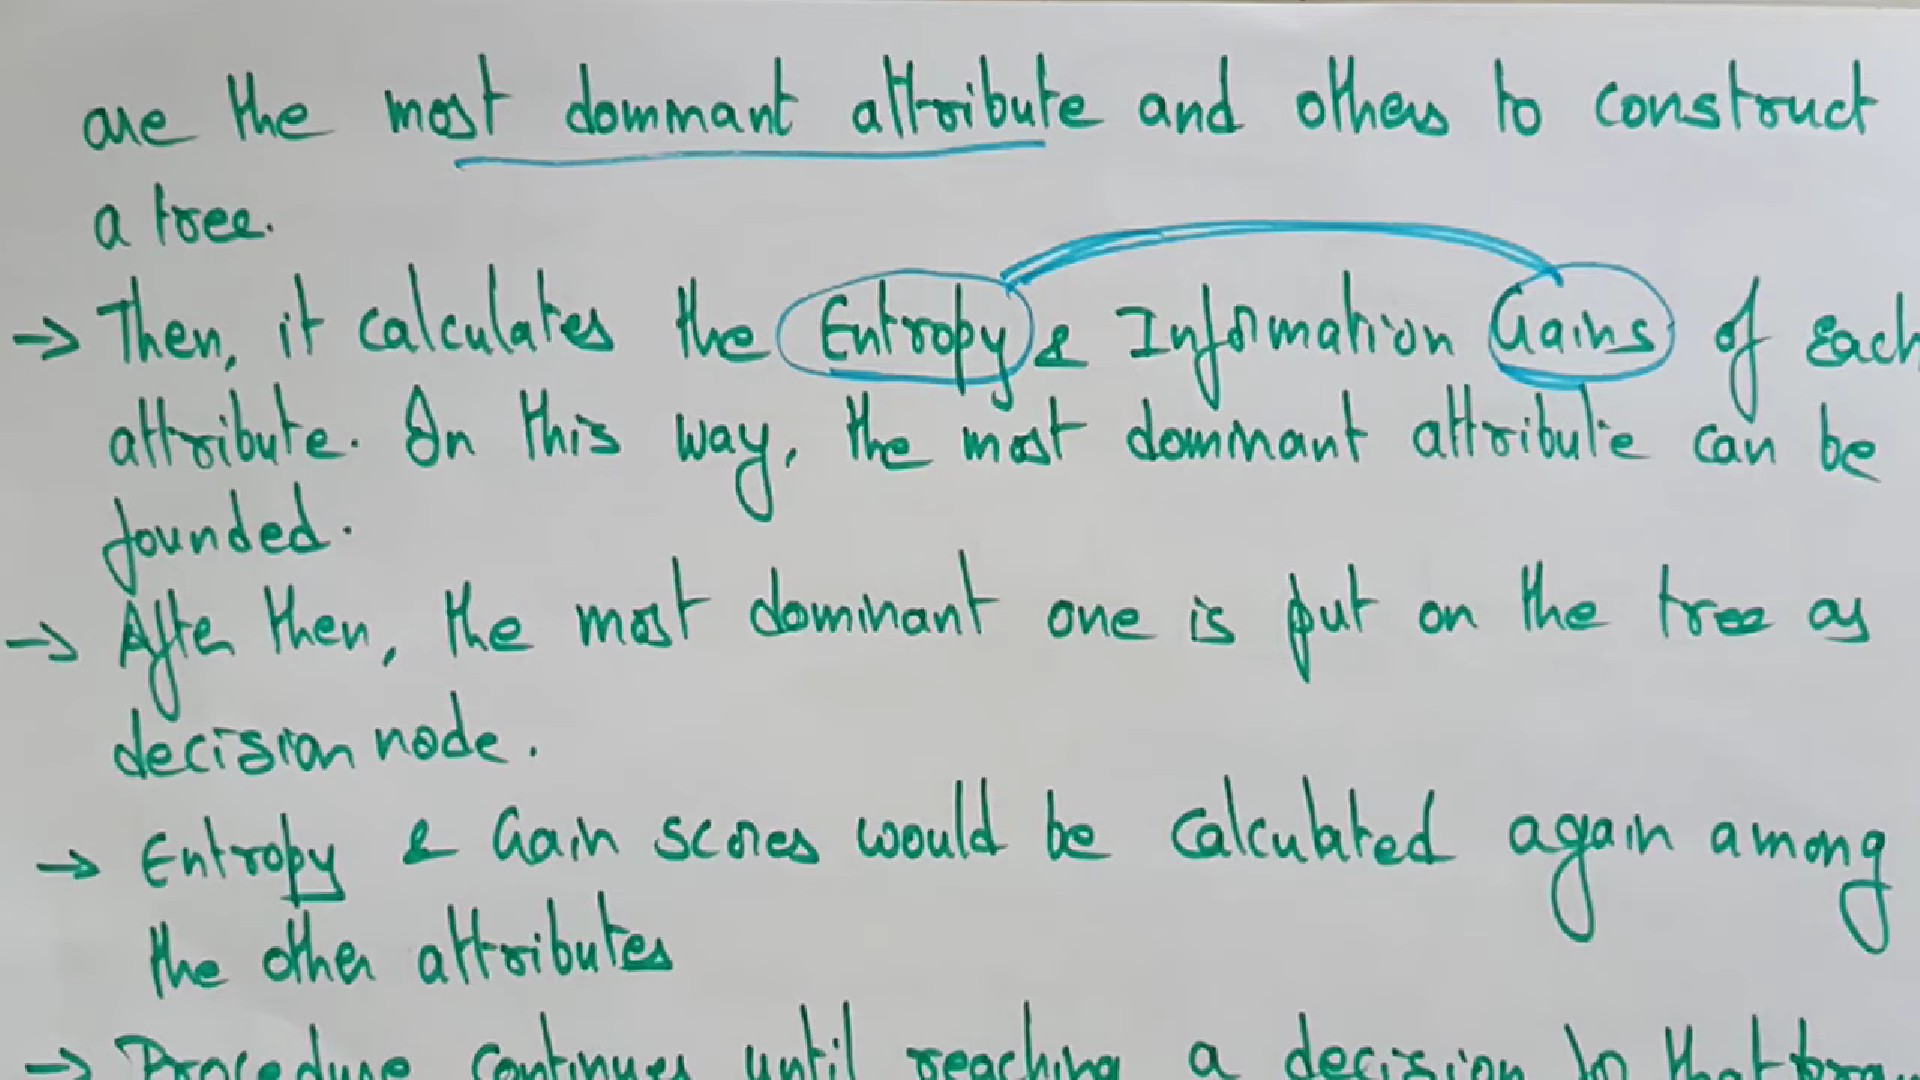 are the most dominant attribute and others to construct
a tree.
→ Then, it calculates the Entropy & Information Gains of Each
attribute. In this way, the most dominant attribute can be
founded.
→ After then, the most dominant one is put on the tree as
decision node.
→ Entropy & Gain scores would be calculated again among
the other attributes
→ Procedure continues until reaching a decision in that